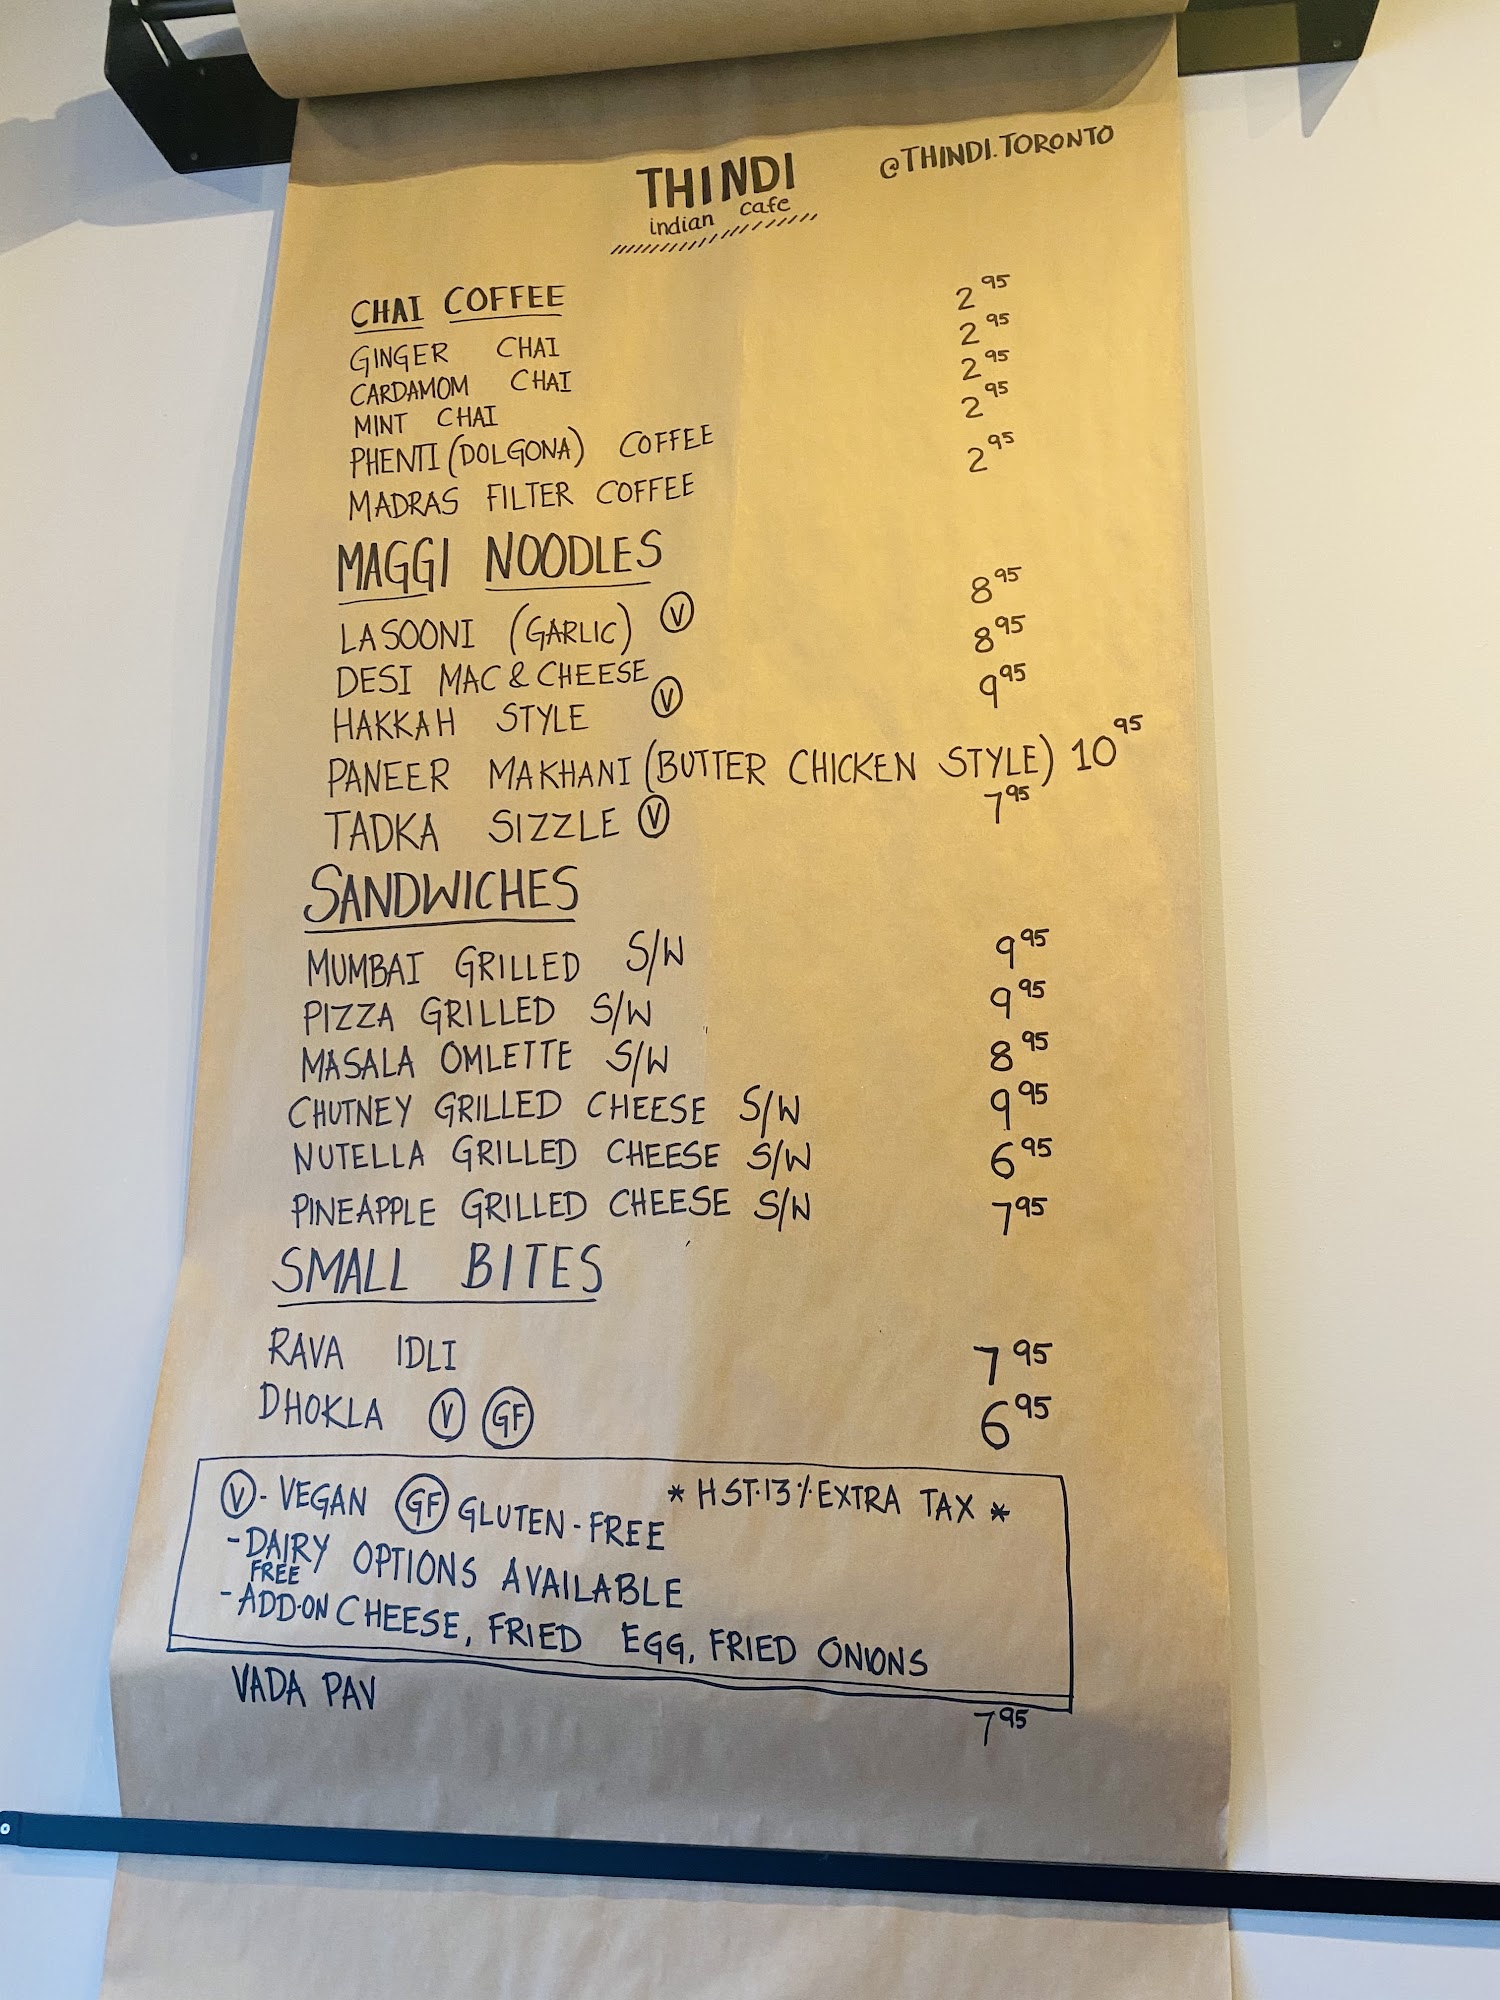 THINDI
indian cafe
@THINDI.TORONTO
CHAI COFFEE
GINGER CHAI 2.95
CARDAMOM CHAI 2.95
MINT CHAI 2.95
PHENTI (DOLGONA) COFFEE 2.95
MADRAS FILTER COFFEE 2.95
MAGGI NOODLES
LASOONI (GARLIC) V 8 95
DESI MAC & CHEESE 8 95
HAKKAH STYLE V 9 95
PANEER MAKHANI (BUTTER CHICKEN STYLE) 10 95
TADKA SIZZLE V 7 95
SANDWICHES
MUMBAI GRILLED S/W 9 95
PIZZA GRILLED S/W 9 95
MASALA OMLETTE S/W 8 95
CHUTNEY GRILLED CHEESE S/W 9 95
NUTELLA GRILLED CHEESE S/W 6 95
PINEAPPLE GRILLED CHEESE S/W 7 95
SMALL BITES
RAVA IDLI 7 95
DHOKLA V GF 6 95
V - VEGAN GF GLUTEN-FREE * HST.13% EXTRA TAX *
- DAIRY FREE OPTIONS AVAILABLE
- ADD-ON CHEESE, FRIED EGG, FRIED ONIONS
VADA PAV 7 95